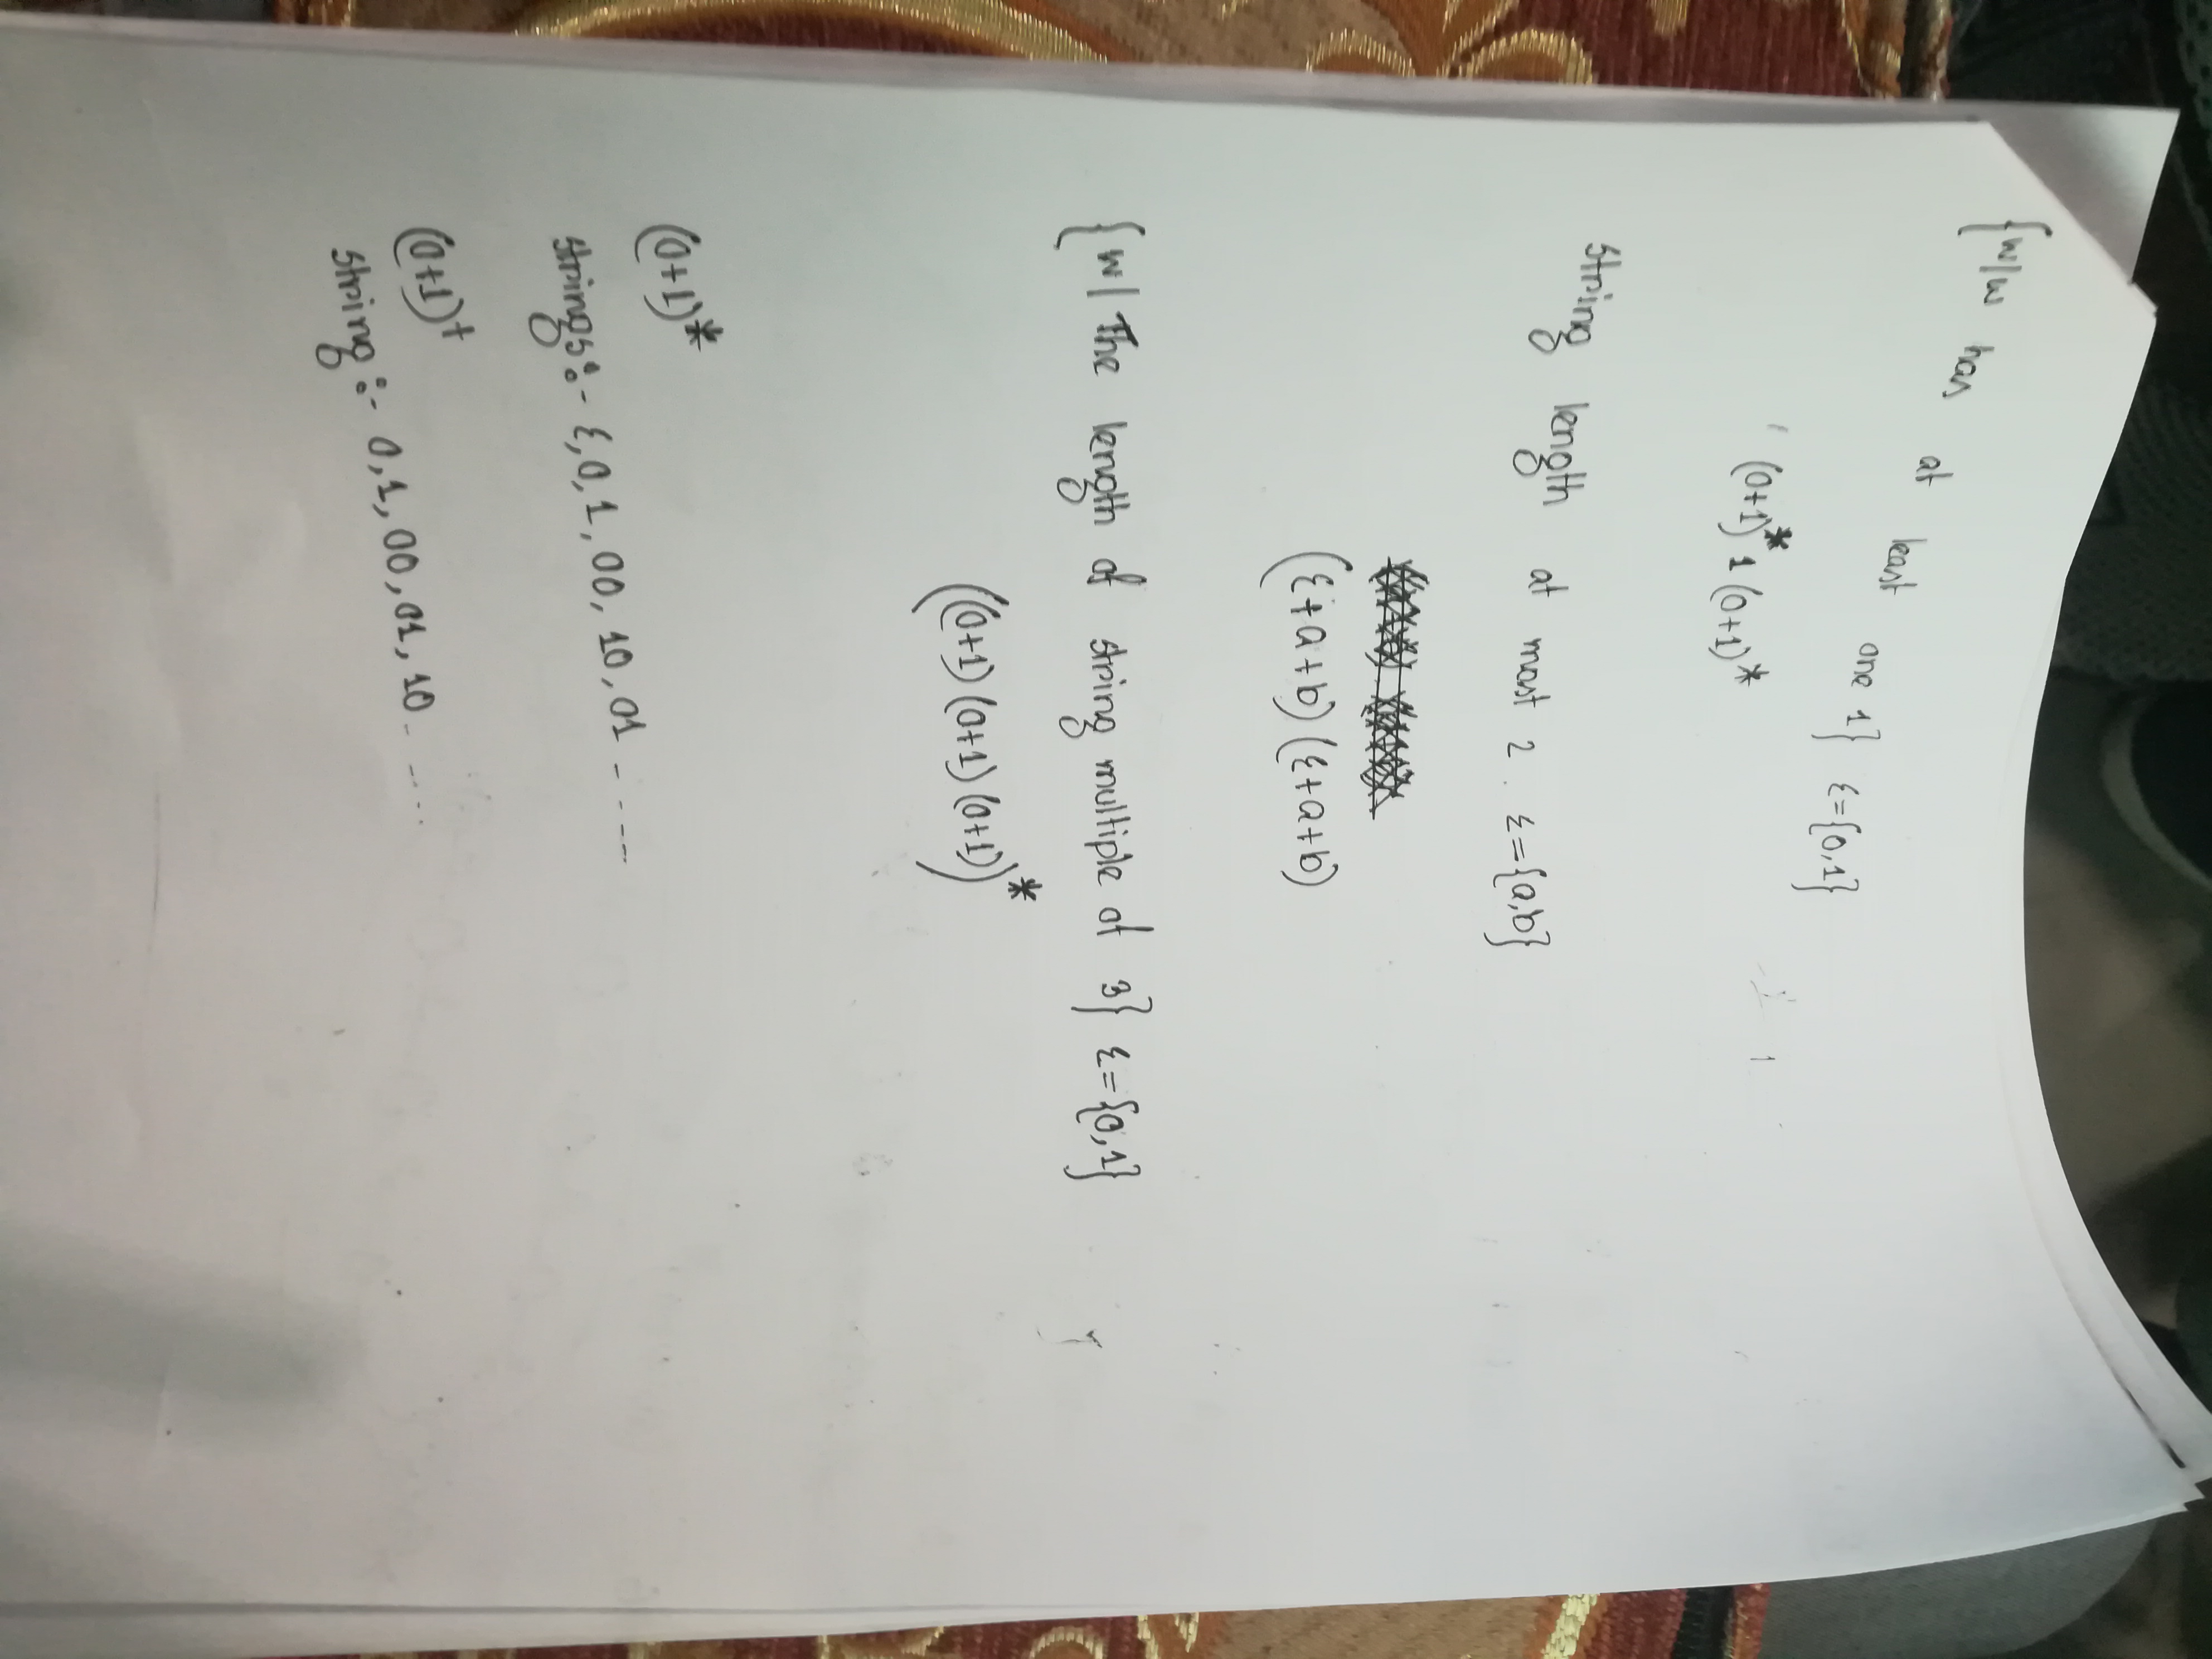 {w/w has at least one 1} Ɛ={0,1}
(0+1)* 1 (0+1)*
String length at most 2. Ɛ={a,b}
(Ɛ+a+b) (Ɛ+a+b)
{w| The length of string multiple of 3} Ɛ={0,1}
((0+1) (0+1) (0+1))*
(0+1)*
strings:- Ɛ,0,1,00,10,01 - - - - -
(0+1)+
string:- 0,1,00,01,10 - - - . . .